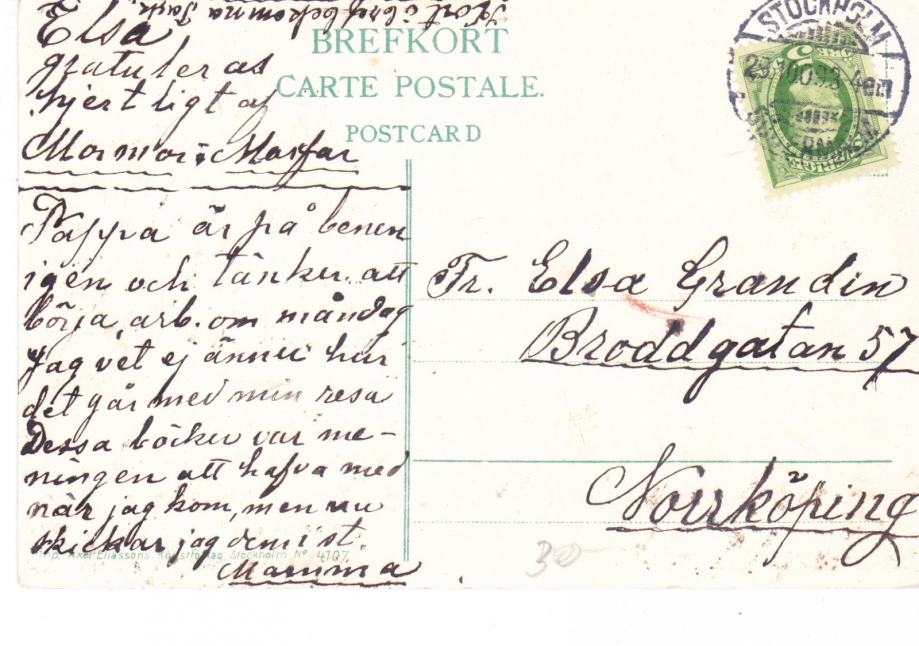 Kort i bref bekomma
Elsa
gratuleras
hjertligt af
Mormor & Morfar
Pappa är på benen
igen och tänker att
börja arb. om måndag
Jag vet ej ännu hur
det går med min resa
Dessa böcker var me-
ningen att hafva med
när jag kom, men nu
skickar jag dem i st.
Mamma
BREFKORT
CARTE POSTALE.
POSTCARD
STOCKHOLM
4em
Fr. Elsa Grandin
Broddgatan 57
Norrköping
Imp. Axel Eliassons Konstförlag Stockholm No 4107
30-